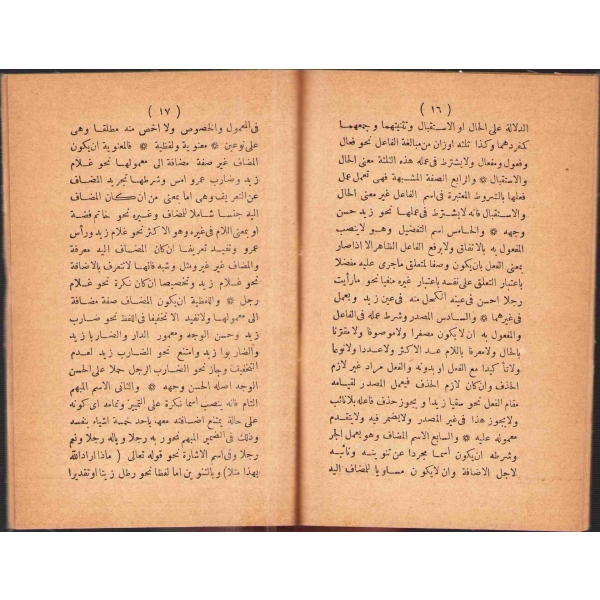 ( ١٦ )
الدلالة على الحال او الاستقبال وتثنيتهما وجمعهما
كمفردهما وكذا ثلثة اوزان من مبالغة الفاعل نحو فعال
وفعول ومفعال ولا يشترط فى عمله هذه الثلثة معنى الحال
والاستقبال ❋ والرابع الصفة المشبهة فهى تعمل عمل
فعلها بالشروط المعتبرة فى اسم الفاعل غير معنى الحال
والاستقبال فانه لا يشترط فى عملها نحو زيد حسن
وجهه ❋ والخامس اسم التفضيل وهو لا ينصب
المفعول به بالاتفاق ولا يرفع الفاعل الظاهر الا اذا صار
بمعنى الفعل بان يكون وصفا لمتعلق ماجرى عليه مفضلا
باعتبار التعلق على نفسه باعتبار غيره منفيا نحو مارأيت
رجلا احسن فى عينه الكحل منه فى عين زيد ويعمل
فى غيرهما ❋ والسادس المصدر وشرط عمله فى الفاعل
والمفعول به ان لا يكون مصغرا ولا موصوفا ولا مقترنا
بالحال ولا معرفا باللام عند الاكثر ولا عددا ولا نوعا
ولا تأكيدا مع الفعل او بدونه والفعل مراد غير لازم
الحذف وان كان لازم الحذف فيعمل المصدر لقيامه
مقام الفعل نحو سقيا زيدا ويجوز حذف فاعله بلا نائب
ولا يجوز هذا فى غير المصدر ولا يضمر فيه ولا يتقدم
معموله عليه ❋ والسابع الاسم المضاف وهو يعمل الجر
وشرطه ان يكون اسما مجردا عن تنوينه ونائبه
لاجل الاضافة وان لا يكون مساويا للمضاف اليه
( ١٧ )
فى العموم والخصوص ولا اخص منه مطلقا وهى
على نوعين ❋ معنوية ولفظية ❋ فالمعنوية ان يكون
المضاف غير صفة مضافة الى معمولها نحو غلام
زيد وضارب عمرو امس وشرطها تجريد المضاف
عن التعريف وهى اما بمعنى من ان كان المضاف
اليه جنسا شاملا للمضاف وغيره نحو خاتم فضة
او بمعنى اللام فى غيره وهو الاكثر نحو غلام زيد ورأس
عمرو وتفيد تعريفا ان كان المضاف اليه معرفة
والمضاف غير غير ومثل وشبه فانها لا تتعرف بالاضافة
نحو غلام زيد وتخصيصا ان كان نكرة نحو غلام
رجل ❋ واللفظية ان يكون المضاف صفة مضافة
الى معمولها ولا تفيد الا تخفيفا فى اللفظ نحو ضارب
زيد وحسن الوجه ومعمور الدار والضاربا زيد
والضاربوا زيد وامتنع نحو الضارب زيد لعدم
التخفيف وجاز نحو الضارب الرجل حملا على الحسن
الوجه اصله الحسن وجهه ❋ والثانى الاسم المبهم
التام فانه ينصب اسما نكرة على التمييز وتمامه اى كونه
على حالة يمتنع اضافته معها باحد خمسة اشياء بنفسه
وذلك فى الضمير المبهم نحو ربه رجلا وياله رجلا ونعم
رجلا وفى اسم الاشارة نحو قوله تعالى ( ماذا اراد الله
بهذا مثلا ) وبالتنوين اما لفظا نحو رطل زيتا او تقديرا